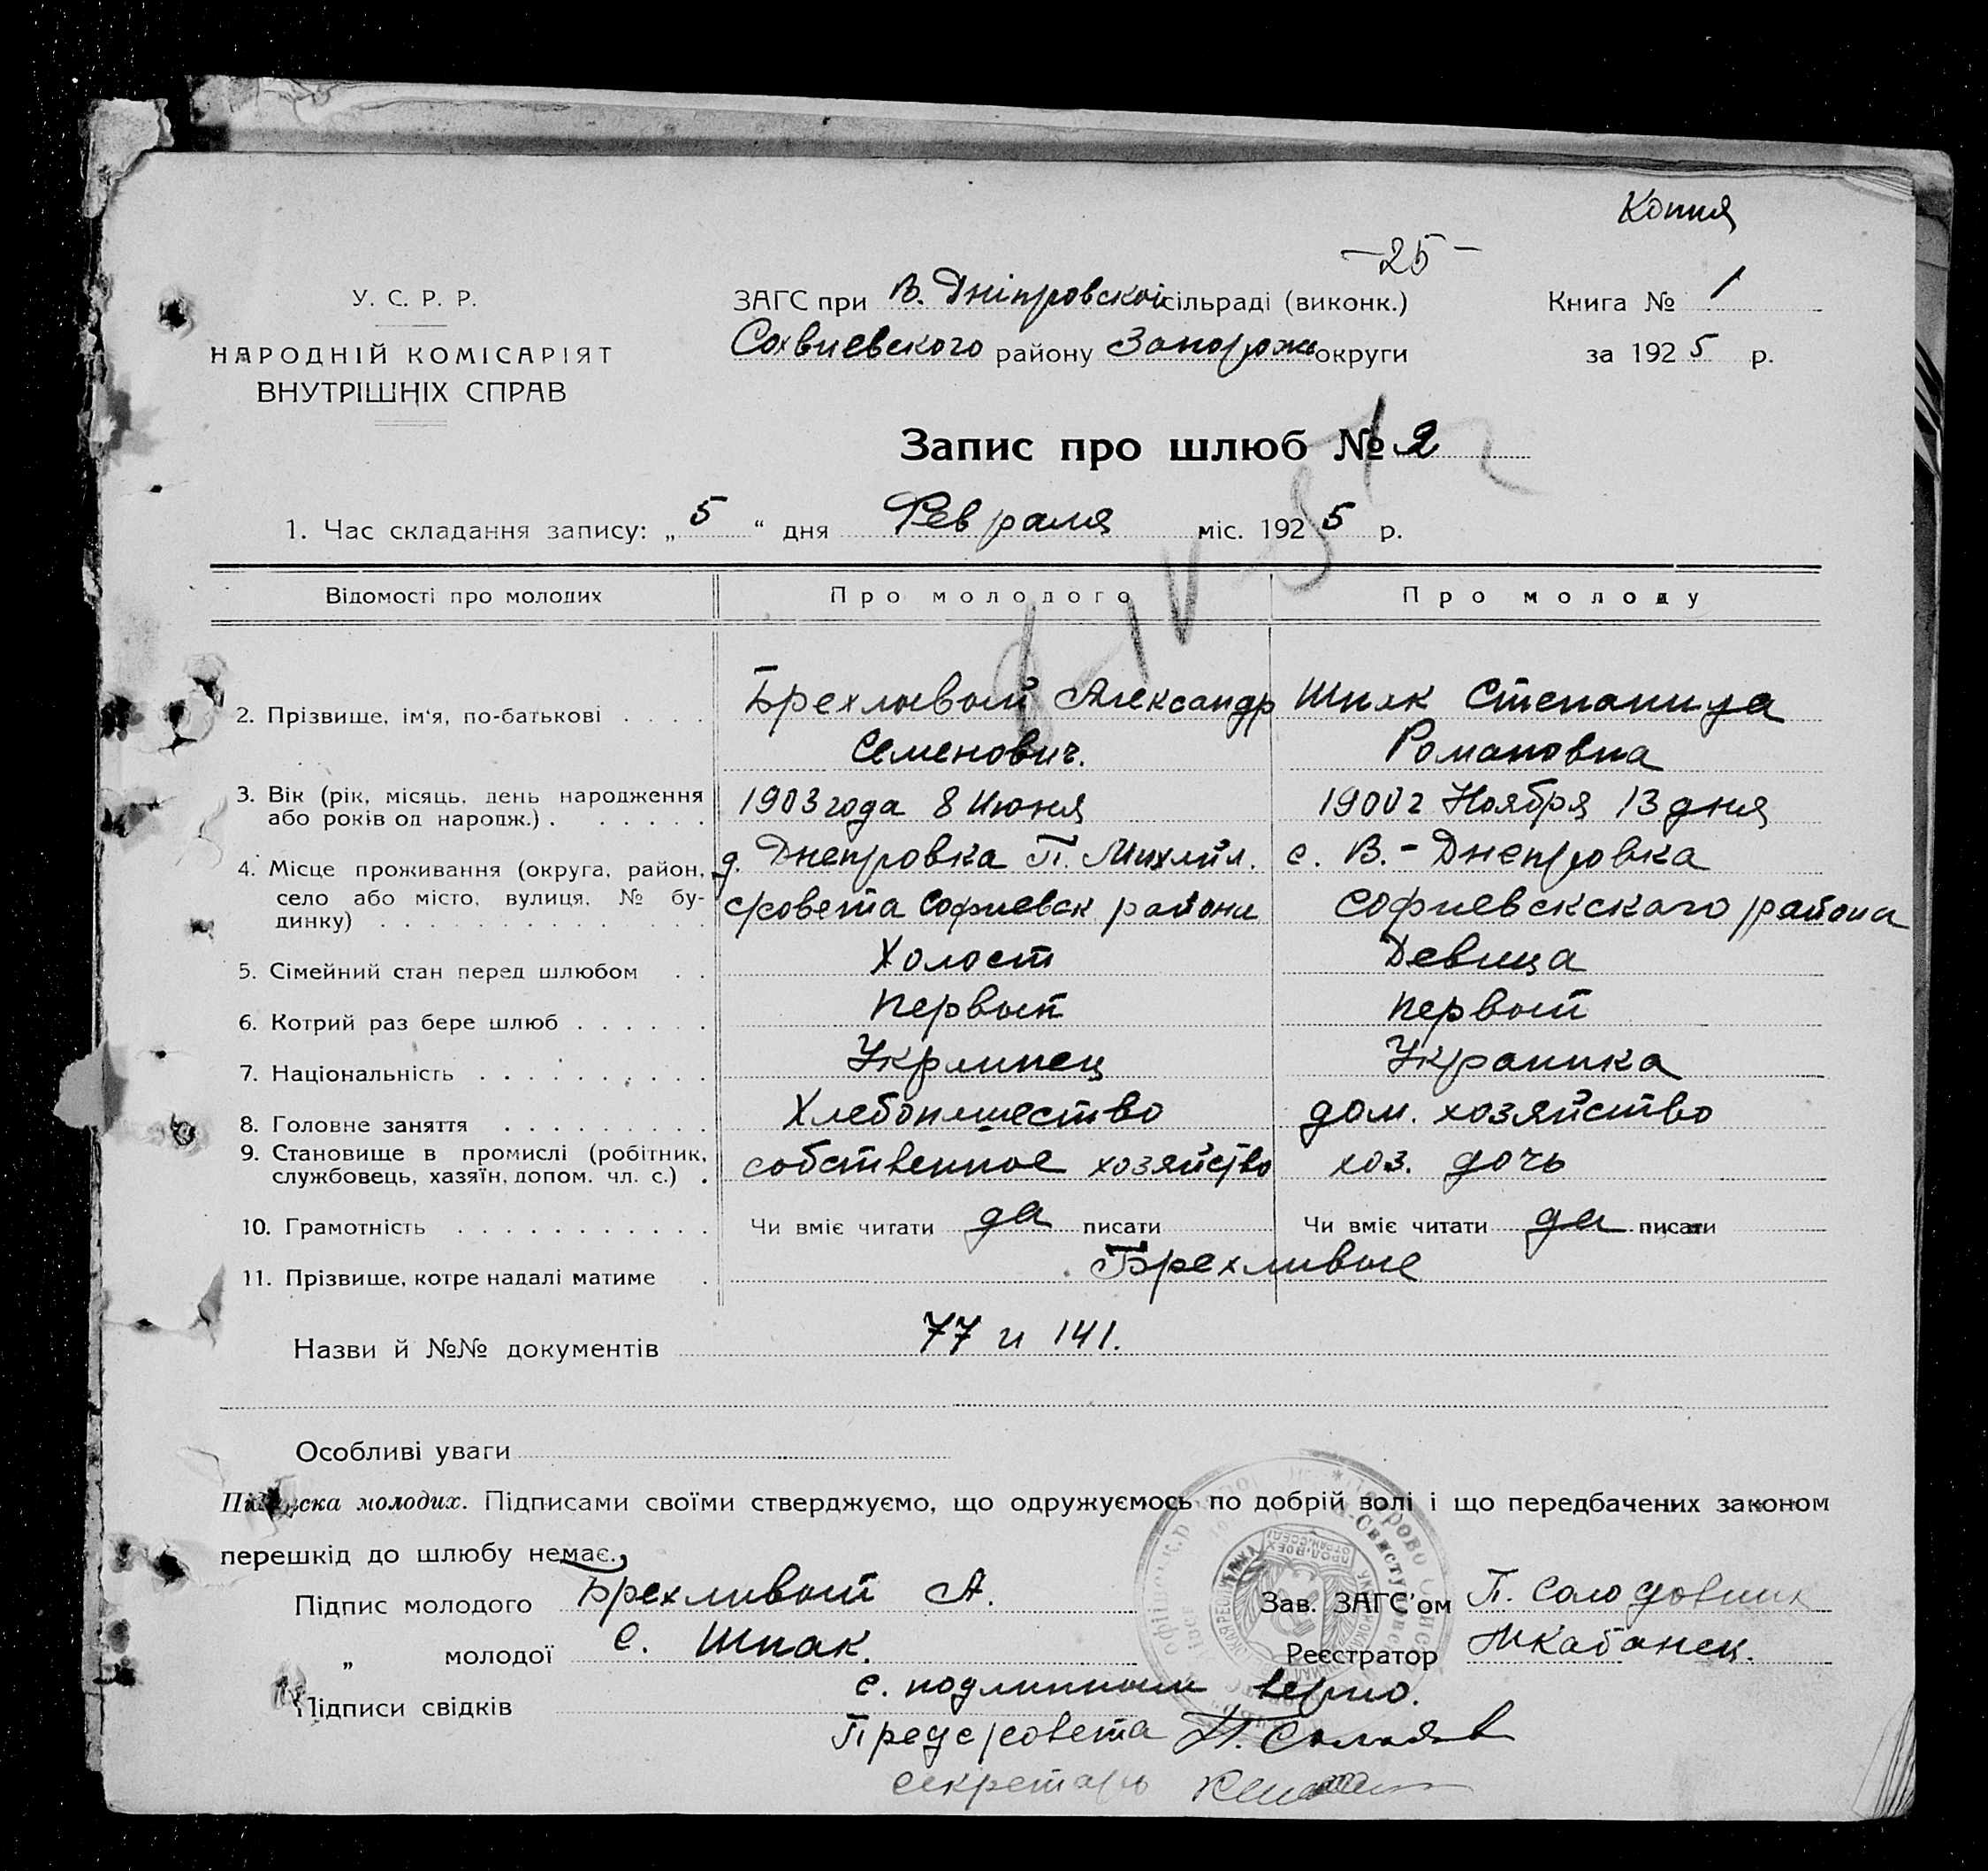 Копия
-25-
У. С. Р. Р.
НАРОДНІЙ КОМІСАРІЯТ
ВНУТРІШНІХ СПРАВ
ЗАГС при В. Дніпровской сільраді (виконк.)
Сохвиевского району Запорожс округи
Книга № 1
за 1925 р.
Запис про шлюб № 2
1. Час складання запису: „5“ дня Февраля міс. 1925 р.
Відомості про молодих Про молодого Про молоду
2. Прізвище, ім'я, по-батькові Брехливый Александр Семенович. Шпак Степанида Романовна
3. Вік (рік, місяць, день народження або років од народж.) 1903 года 8 Июня 1900 г Ноября 13 дня
4. Місце проживання (округа, район, село або місто, вулиця, № будинку) д. Днепровка П. Михайл. с/совета Софиевск района с. В.-Днепровка Софиевскского района
5. Сімейний стан перед шлюбом Холост Девица
6. Котрий раз бере шлюб первый первый
7. Національність Украинец Украинка
8. Головне заняття Хлебопашество дом. хозяйство
9. Становище в промислі (робітник, службовець, хазяїн, допом. чл. с.) собственное хозяйство хоз. дочь
10. Грамотність Чи вміє читати да писати Чи вміє читати да писати
11. Прізвище, котре надалі матиме Брехливые
Назви й №№ документів 77 и 141.
Особливі уваги
Підписка молодих. Підписами своїми стверджуємо, що одружуємось по добрій волі і що передбачених законом
перешкід до шлюбу немає.
Підпис молодого Брехливый А. Зав. ЗАГС'ом П. Солодовник
„ молодої С. Шпак. Реєстратор
Підписи свідків
с. подлинным верно.
Пред с/совета
секретарь